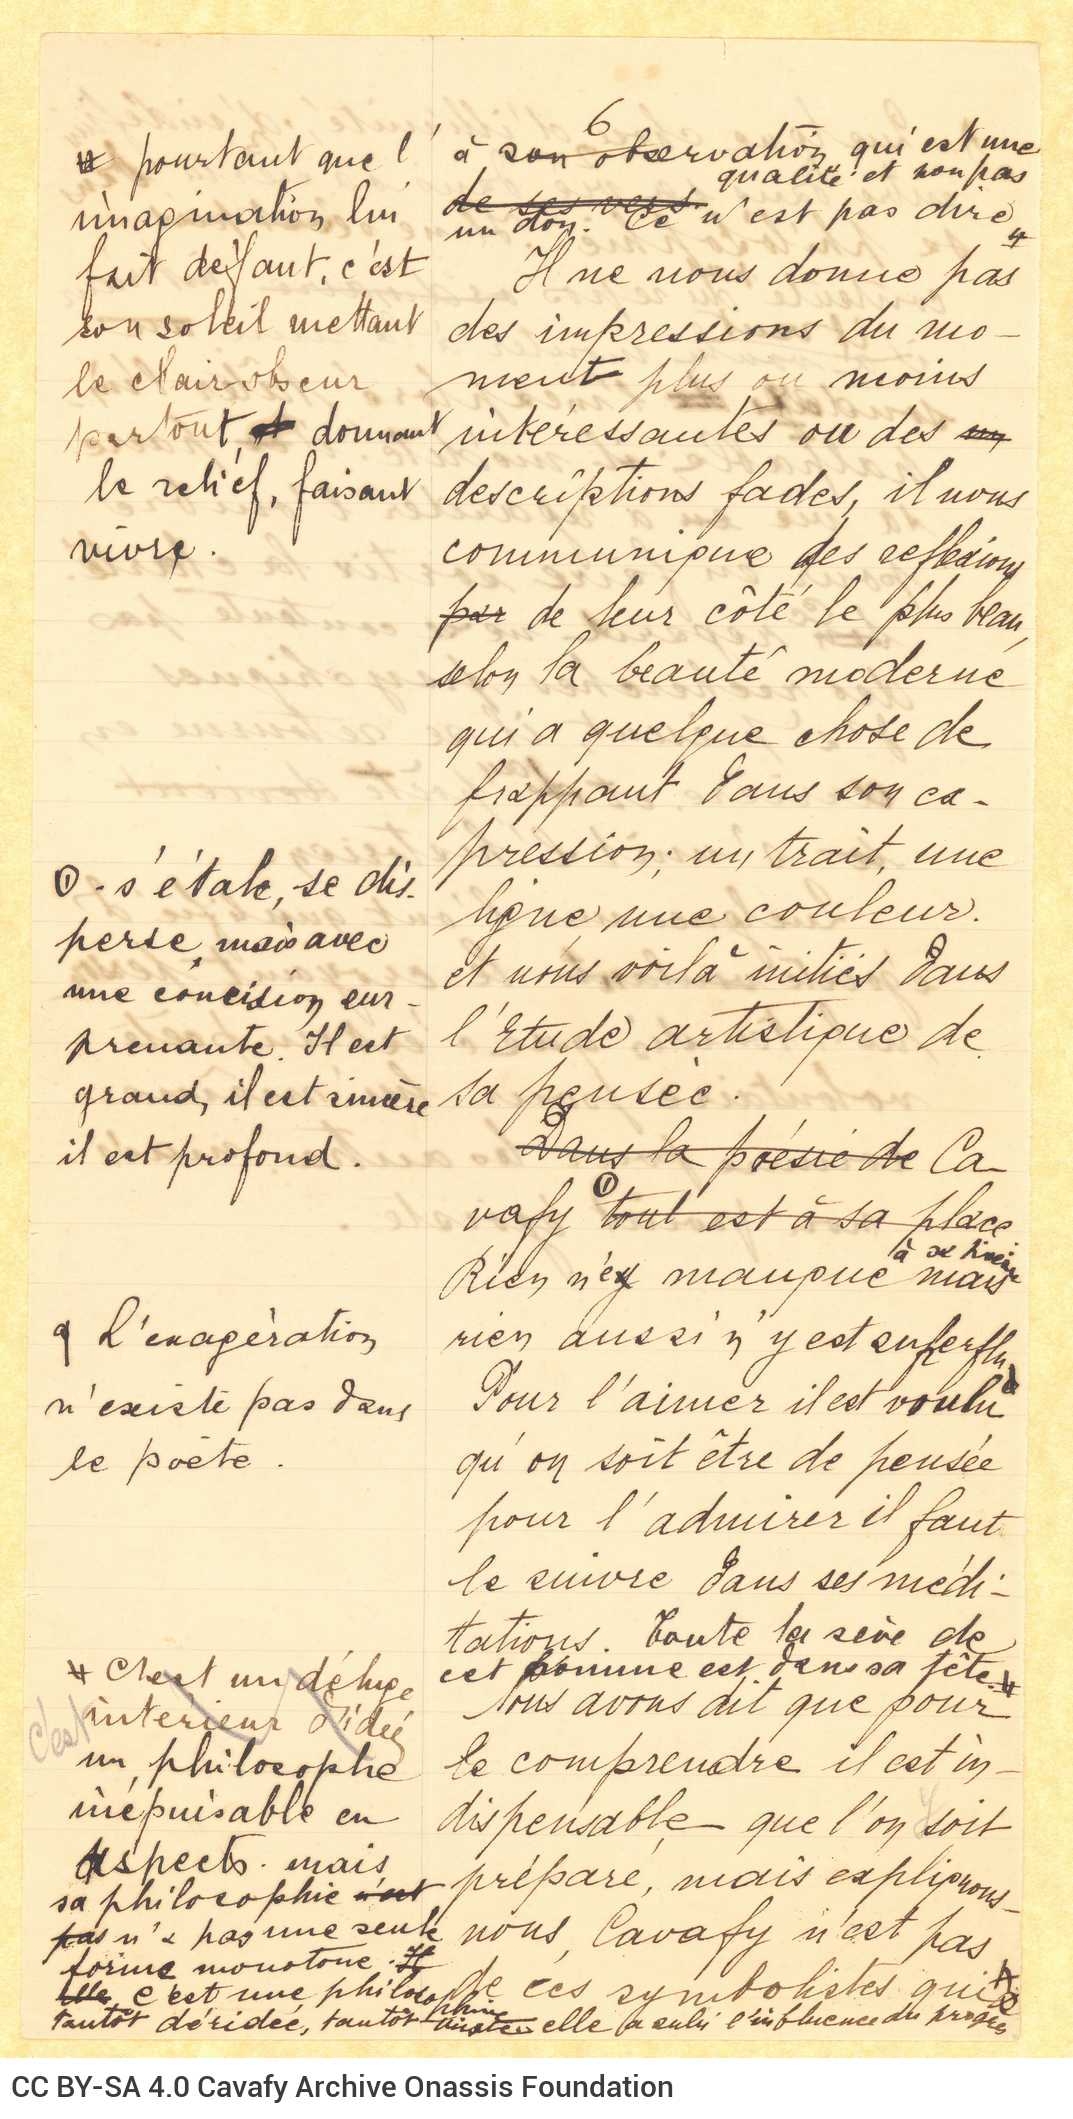 6
à son observation, qui est une
qualité et non pas
de ses vers.
un don. Ce n'est pas dire
Il ne nous donne pas
des impressions du mo-
ment plus ou moins
intéressantes ou des un
descriptions fades, il nous
communique des reflexions
par de leur côté le plus beau,
selon la beauté moderne
qui a quelque chose de
frappant dans son ex-
pression; un trait, une
ligne, une couleur.
et nous voilà initiés dans
l'Etude artistique de
sa pensée.
Dans la poésie de Ca-
vafy tout est à sa place
Rien n'y manque mais
rien aussi n'y est superflu
Pour l'aimer il est voulu
qu'on soit être de pensée
pour l'admirer il faut
le suivre dans ses médi-
tations. Toute la sève de
cet homme est dans sa tête.
Nous avons dit que pour
le comprendre il est in-
dispensable que l'on soit
préparé, mais expliquons-
nous, Cavafy n'est pas
de ces symbolistes qui
pourtant que l'
imagination lui
fait défaut, c'est
son soleil mettant
le clair-obscur
partout et donnant
le relief, faisant
vivre.
① - s'étale, se dis-
perse, mais avec
une concision sur-
prenante. Il est
grand, il est sincère
il est profond.
L'exagération
n'existe pas dans
le poète.
C'est un déluge
intérieur d'idées
c'est
un philosophe
inépuisable en
aspects. mais
sa philosophie n'est
pas n'a pas une seule
forme monotone. Il
elle c'est une philosophie
tantôt déridée, tantôt austère elle a subi l'influence du progrès
CC BY-SA 4.0 Cavafy Archive Onassis Foundation